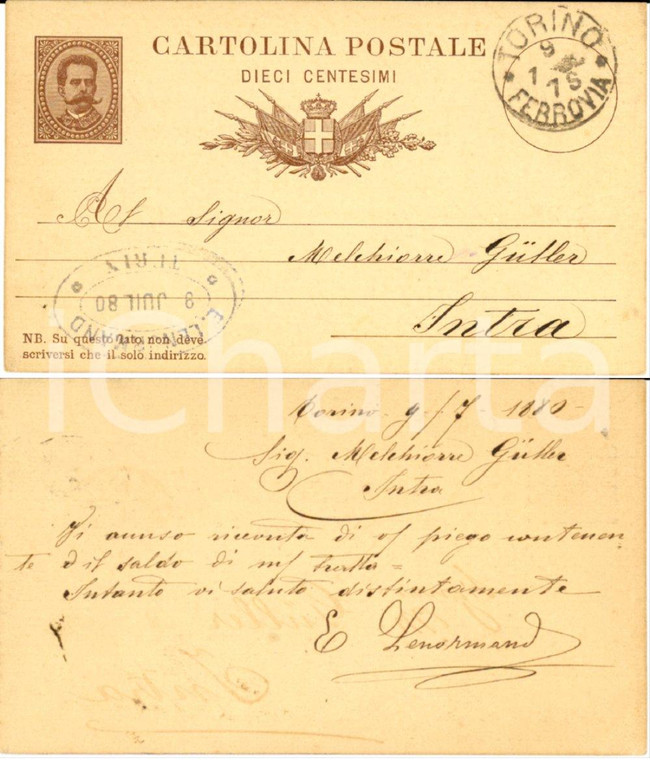 CARTOLINA POSTALE
DIECI CENTESIMI
TORINO
9
1 7S
FERROVIA
Al Signor
Melchiorre Gütler
Intra
E. LENORMAND
8 JUIL 80
TURIN
NB. Su questo lato non deve
scriversi che il solo indirizzo.
iCharta
Torino 9/7 - 1880 -
Sig. Melchiorre Gütler
Intra
Vi accuso ricevuta di v/ piego contenen-
te il saldo di m/ tratta =
Intanto vi saluto distintamente
E Lenormand